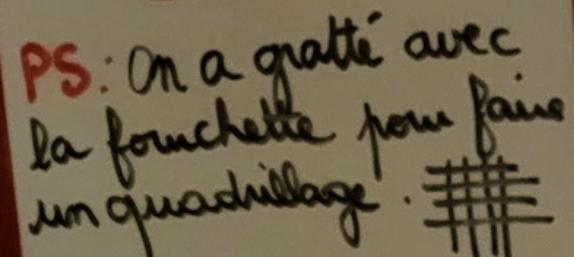 PS: On a gratté avec
la fourchette pour faire
un quadrillage.